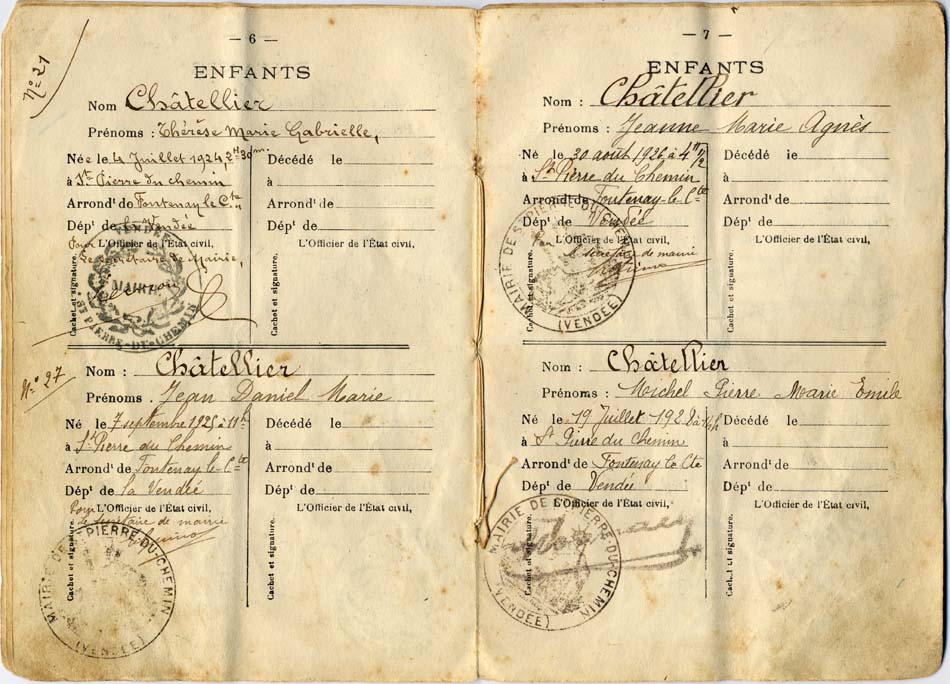 — 6 —
N° 21
ENFANTS
Nom Châtellier
Prénoms : Thérèse Marie Gabrielle,
Née le 4 Juillet 1924, 2H 30m.
à St Pierre du chemin
Arrondt de Fontenay le Cte
Dépt de la Vendée
Pour L'Officier de l'État civil,
Le Secrétaire de Mairie,
Cachet et signature.
VENDÉE
MAIRIE
ST PIERRE-DU-CHEMIN
Décédé le
à
Arrond't de
Dép't de
L'Officier de l'État civil,
Cachet et signature.
N° 27
Nom : Châtellier
Prénoms . Jean Daniel Marie
Né le 7 septembre 1925 à 11h
à St Pierre du Chemin
Arrondt de Fontenay le Cte
Dépt de la Vendée
Pour L'Officier de l'État civil,
le secrétaire de mairie
Cachet et signature.
MAIRIE DE ST PIERRE-DU-CHEMIN
(VENDÉE)
Décédé le
à
Arrondt de
Dépt de
L'Officier de l'État civil,
Cachet et signature.
— 7 —
ENFANTS
Nom : Châtellier
Prénoms : Jeanne Marie Agnès
Né le 30 août 1926 à 4H 1/2
à St Pierre du Chemin
Arrondt de Fontenay-le-Cte
Dépt de Vendée
L'Officier de l'État civil,
le secrétaire de mairie
Cachet et signature.
MAIRIE DE ST PIERRE DU CHEMIN
(VENDÉE)
Décédé le
à
Arrondt de
Dépt de
L'Officier de l'État civil,
Cachet et signature.
Nom : Châtellier
Prénoms : Michel Pierre Marie Emile
Né le 19 Juillet 1928 à
à St Pierre du Chemin
Arrondt de Fontenay le Cte
Dépt de Vendée
L'Officier de l'État civil,
Cachet et signature.
MAIRIE DE ST PIERRE-DU-CHEMIN
(VENDÉE)
Décédé le
à
Arrondt de
Dépt de
L'Officier de l'État civil,
Cachet et signature.